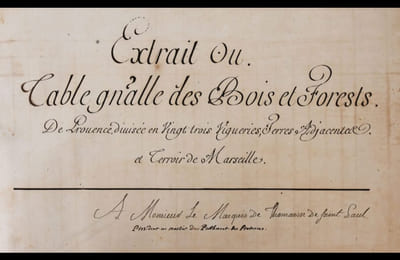 Extrait Ou.
Table gñalle des Bois et Forests.
De Prouence, diuisée en Vingt trois Vigueries, Terres Adjacentes.
et Terroir de Marseille.
A Monsieur Le Marquis de Thomassin de Saint Paul
President